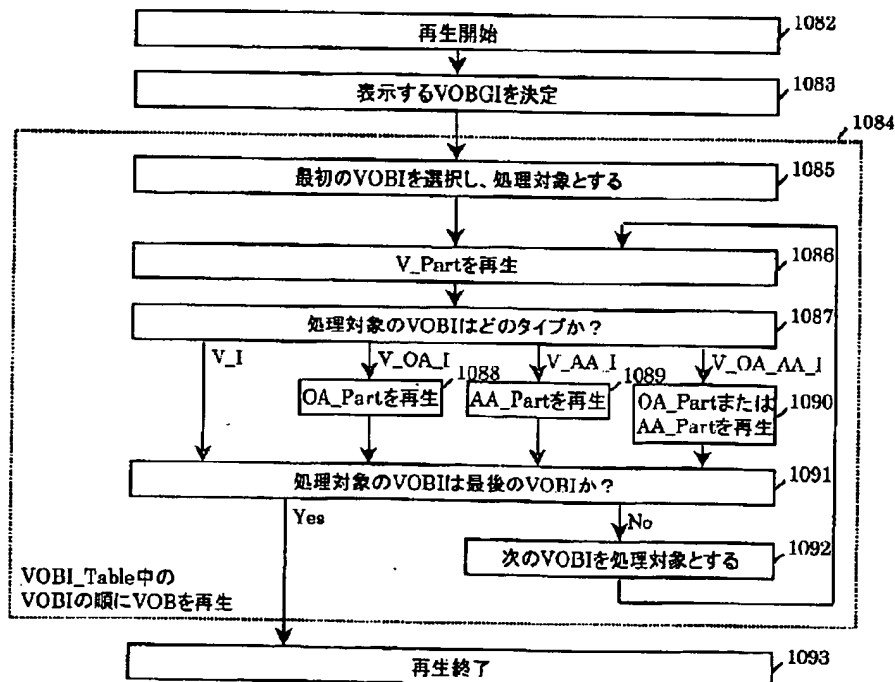 再生開始
1082
表示するVOBGIを決定
1083
1084
最初のVOBIを選択し、処理対象とする
1085
V_Partを再生
1086
処理対象のVOBIはどのタイプか?
1087
V_I
V_OA_I
V_AA_I
V_OA_AA_I
OA_Partを再生
1088
AA_Partを再生
1089
OA_Partまたは
AA_Partを再生
1090
処理対象のVOBIは最後のVOBIか?
1091
Yes
No
次のVOBIを処理対象とする
1092
VOBI_Table中の
VOBIの順にVOBを再生
再生終了
1093